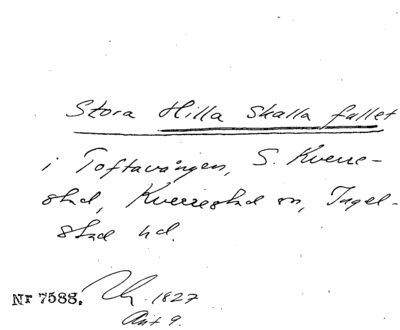 Stora Hilla Skalla fallet
i Toftavången, S. Kverre-
stad, Kverrestad sn, Ingel-
stad hd.
Nr 7588. 1827
Akt 9.